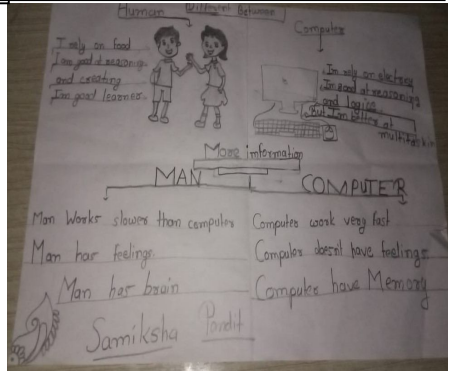 Human Different Between Computer
I rely on food
I am good at reasoning
and creating
I'm good learner.
I'm rely on electricity
I'm good at reasoning
and logics
But I'm better at
multitaskin
More information
MAN
COMPUTER
Man Works slower than computer
Computer work very fast
Man has feelings.
Computer doesn't have feelings
Man has brain
Computer have Memory
Samiksha Pandit